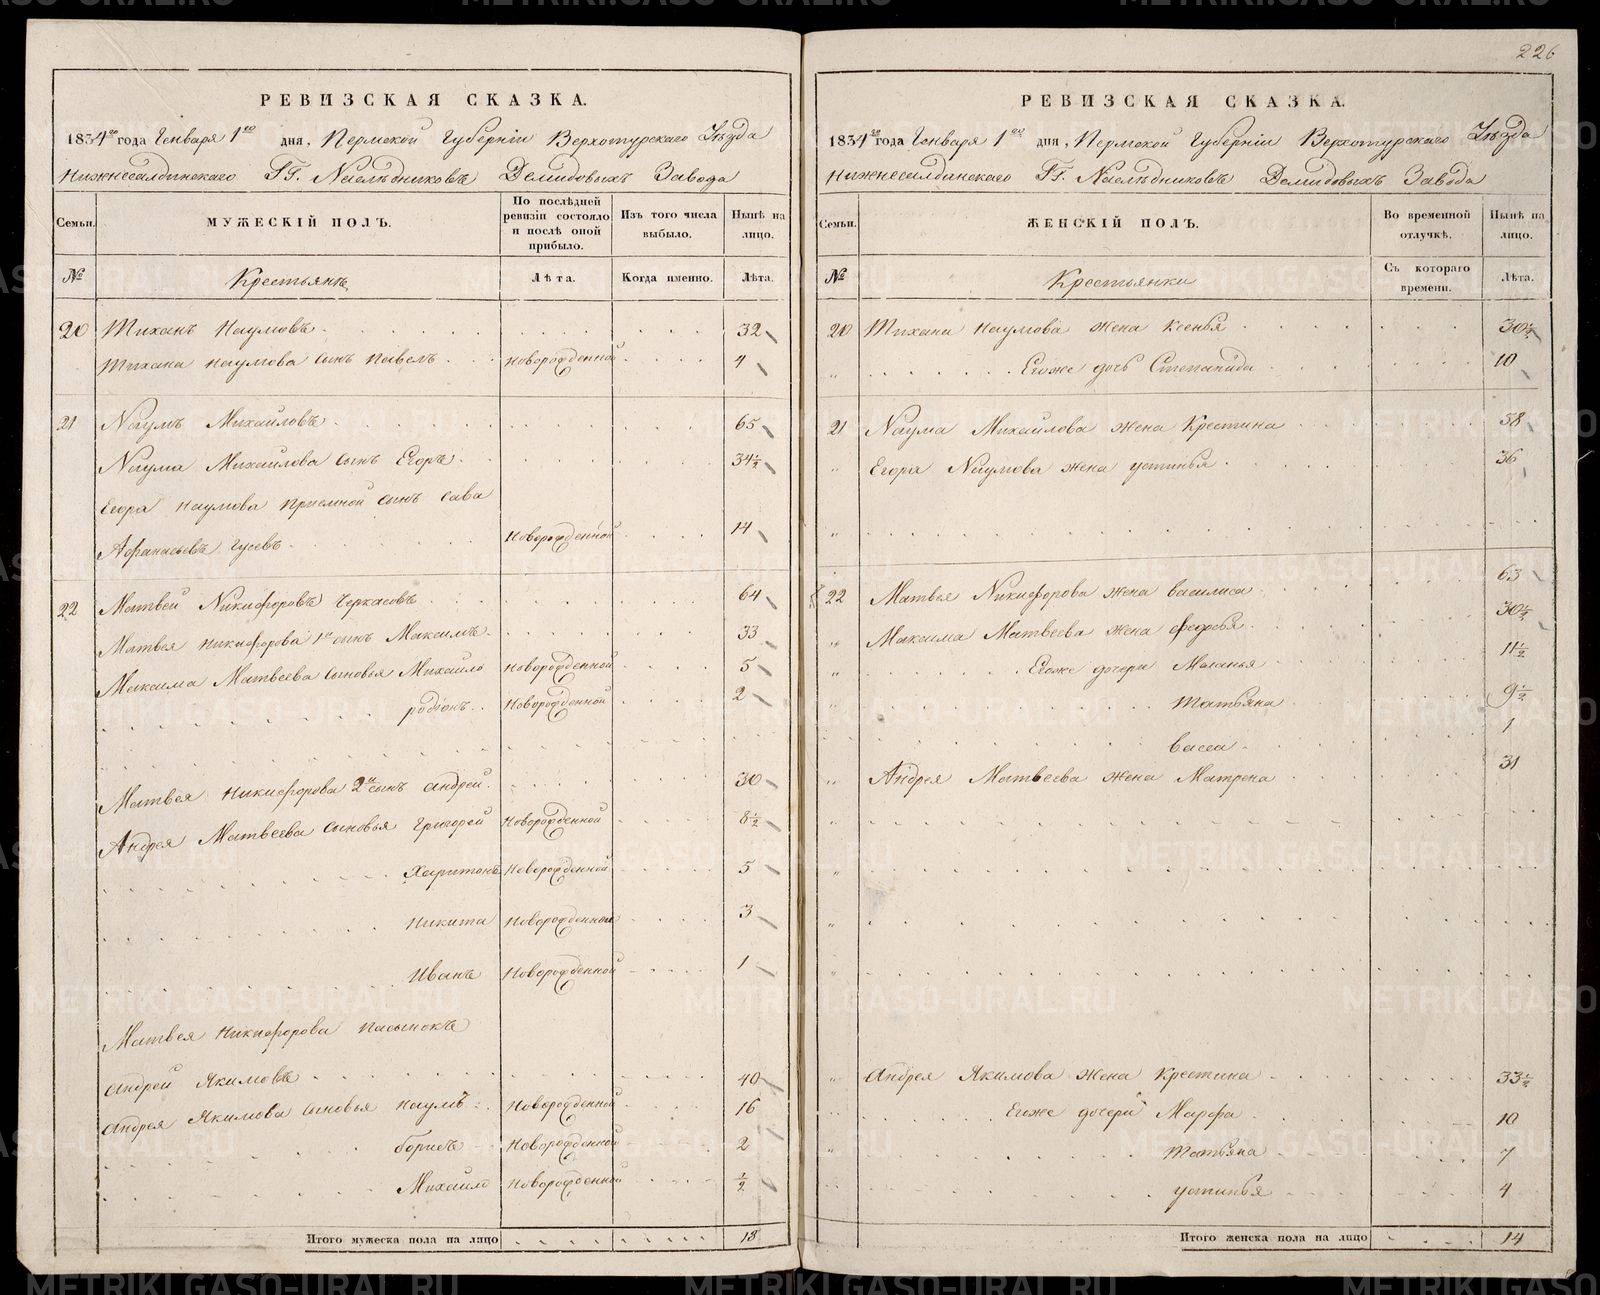 226
РЕВИЗСКАЯ СКАЗКА.
1834го года Генваря 1го дня, Пермской Губерніи Верхотурскаго Уѣзда
Нижнесалдинскаго ГГ. Наслѣдниковъ Демидовыхъ Завода
Семьи. МУЖЕСКІЙ ПОЛЪ. По послѣдней ревизіи состояло и послѣ оной прибыло. Изъ того числа выбыло. Нынѣ на лицо.
№ Крестьянъ Лѣта. Когда именно. Лѣта.
20 Тиханъ Наумовъ 32
Тихана Наумова сынъ Павелъ Новорожденной 4
21 Наумъ Михайловъ 65
Наума Михайлова сынъ Егоръ 34½
Егора Наумова приемной сынъ Сава
Афанасьевъ Гусевъ Новорожденной 14
22 Матвей Никифоровъ Черкасовъ 64
Матвея Никифорова 1й сынъ Максимъ 33
Максима Матвеева сыновья Михайло Новорожденной 5
родіонъ Новорожденной 2
Матвея Никифорова 2й сынъ андрей 30
Андрея Матвеева сыновья Григорей Новорожденной 8½
Харитонъ Новорожденной 5
Никита Новорожденной 3
Иванъ Новорожденной 1
Матвея Никифорова пасынокъ
андрей Якимовъ 40
андрея Якимова сыновья Наумъ Новорожденной 16
борисъ Новорожденной 2
Михайло Новорожденной ½
Итого мужеска пола на лицо 18
РЕВИЗСКАЯ СКАЗКА.
1834го года Генваря 1го дня, Пермской Губерніи Верхотурскаго Уѣзда
Нижнесалдинскаго ГГ. Наслѣдниковъ Демидовыхъ Завода
Семьи. ЖЕНСКІЙ ПОЛЪ. Во временной отлучкѣ. Нынѣ на лицо.
№ Крестьянки Съ котораго времени. Лѣта.
20 Тихана Наумова жена Ксенья 30½
Егоже дочь Степанида 10
21 Наума Михайлова жена Крестина 58
Егора Наумова жена устинья 36
22 Матвея Никифорова жена василиса 63
Максима Матвеева жена федосья 30½
Егоже дочери Маланья 11½
Татьяна 9½
васса 1
Андрея Матвеева жена Матрена 31
Андрея Якимова жена Крестина 33½
Егоже дочери Марфа 10
Татьяна 7
устинья 4
Итого женска пола на лицо 14
METRIKI.GASO-URAL.RU